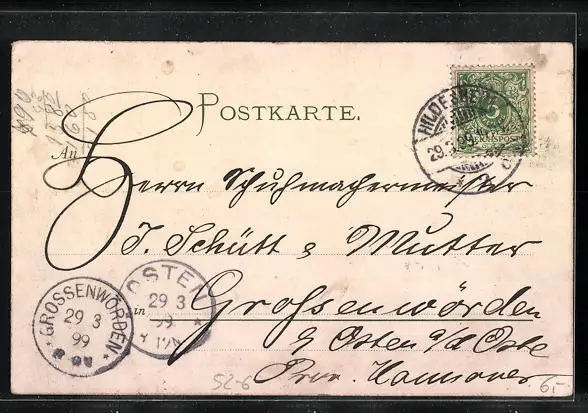 POSTKARTE.
HILDESHEIM
29.3.99
5
REICHSPOST
An
Herrn Schuhmachermeister
J. Schütt & Mutter
in Grossenwörden
b/ Osten a/d Oste
Prov. Hannover
OSTEN
29 3
99
GROSSENWÖRDEN
29 3
99
52-6
6,-